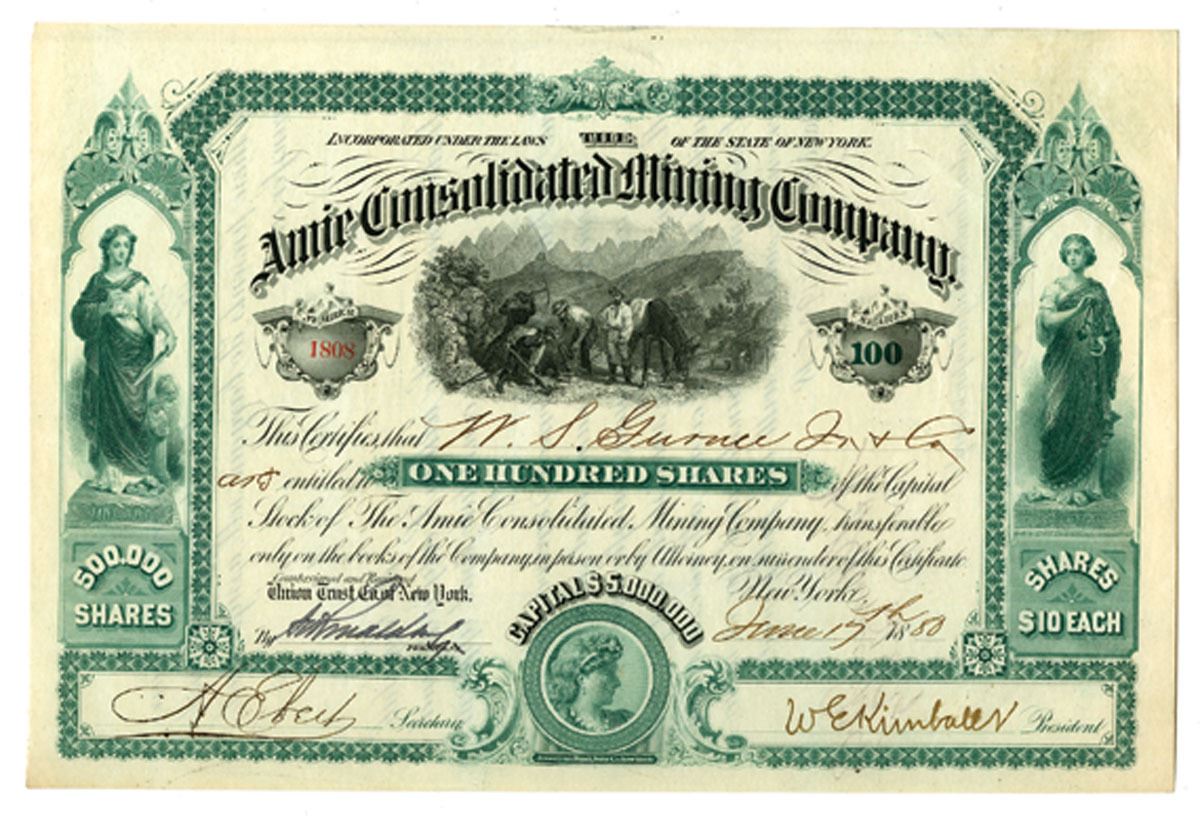 INCORPORATED UNDER THE LAWS THE OF THE STATE OF NEW YORK.
Amie Consolidated Mining Company.
NUMBER SHARES
1808 100
This Certifies, that W. S. Gurnee Jr. & Co
are entitled to ONE HUNDRED SHARES of the Capital
Stock of The Amie Consolidated Mining Company, transferable
only on the books of the Company, in person or by Attorney, on surrender of this Certificate
Countersigned and Registered
Union Trust Co. of New York.
New York,
By
June 17th 1880
CAPITAL $5,000,000
500,000
SHARES
SHARES
$10 EACH
A Ebert Secretary
W E Kimball Jr President